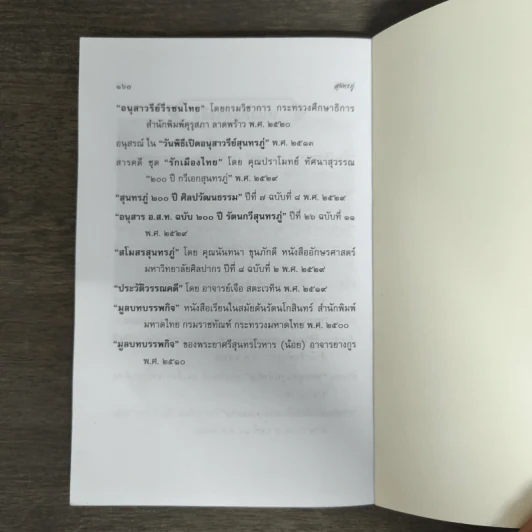 ๑๖๐ สุนทรภู่
"อนุสาวรีย์วีรชนไทย" โดยกรมวิชาการ กระทรวงศึกษาธิการ
สำนักพิมพ์คุรุสภา ลาดพร้าว พ.ศ. ๒๕๒๐
อนุสรณ์ ใน "วันพิธีเปิดอนุสาวรีย์สุนทรภู่" พ.ศ. ๒๕๑๓
สารคดี ชุด "รักเมืองไทย" โดย คุณปราโมทย์ ทัศนาสุวรรณ
"๒๐๐ ปี กวีเอกสุนทรภู่" พ.ศ. ๒๕๒๙
"สุนทรภู่ ๒๐๐ ปี ศิลปวัฒนธรรม" ปีที่ ๗ ฉบับที่ ๘ พ.ศ. ๒๕๒๙
"อนุสาร อ.ส.ท. ฉบับ ๒๐๐ ปี รัตนกวีสุนทรภู่" ปีที่ ๒๖ ฉบับที่ ๑๑
พ.ศ. ๒๕๒๙
"สโมสรสุนทรภู่" โดย คุณนันทนา ขุนภักดี หนังสืออักษรศาสตร์
มหาวิทยาลัยศิลปากร ปีที่ ๘ ฉบับที่ ๒ พ.ศ. ๒๕๒๙
"ประวัติวรรณคดี" โดย อาจารย์เจือ สตะเวทิน พ.ศ. ๒๕๑๙
"มูลบทบรรพกิจ" หนังสือเรียนในสมัยต้นรัตนโกสินทร์ สำนักพิมพ์
มหาดไทย กรมราชทัณฑ์ กระทรวงมหาดไทย พ.ศ. ๒๕๐๐
"มูลบทบรรพกิจ" ของพระยาศรีสุนทรโวหาร (น้อย) อาจารยางกูร
พ.ศ. ๒๕๑๐